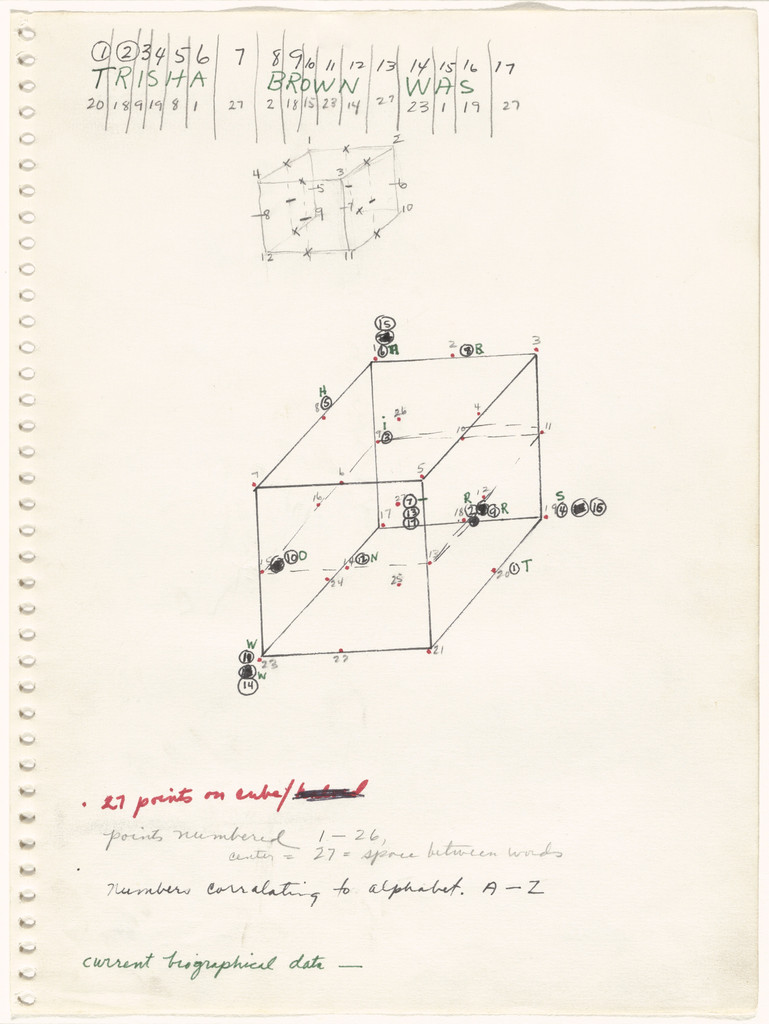 1 2 3 4 5 6 7 8 9 10 11 12 13 14 15 16 17
TRISHA BROWN WAS
20 18 9 19 8 1 27 2 18 15 23 14 27 23 1 19 27
1 2
4 3
5 6
8 9 7 10
12 11
15
1 6 A 2 8 B 3
H
8 5 26 4
i
9 3 10 11
7 6 5
16 27 7 12 S
17 13 18 R 2 9 R 19 4 16
17
15 10 O 14 12 N 13
24 25 20 1 T
W
11 23 22 21
W
14
27 points on cube/
points numbered 1 – 26,
center = 27 = space between words
numbers corralating to alphabet. A – Z
current biographical data —